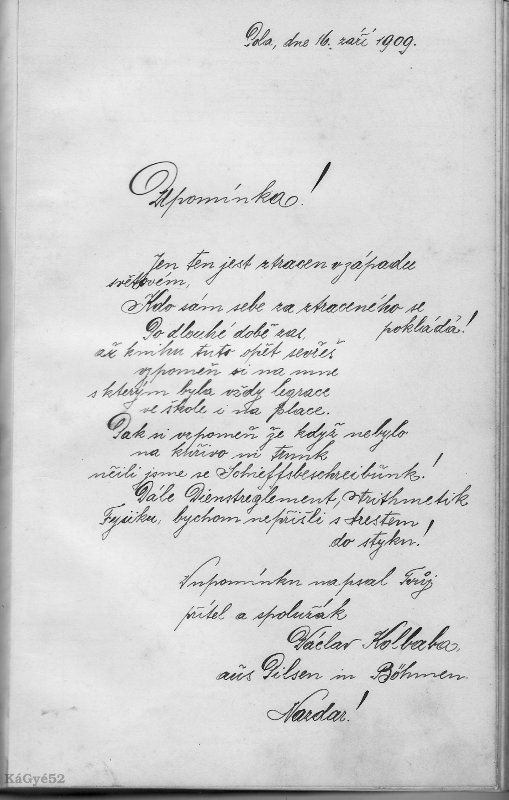 Pola, dne 16. září 1909.
Upomínka!
Jen ten jest ztracen v západu
světovém,
Kdo sám sebe za ztraceného se
pokládá!
Po dlouhé době zas,
až knihu tuto opět sevřeš
vzpomeň si na mne
s kterým byla vždy legrace
ve škole i na place.
Pak si vzpomeň že když nebylo
na kuřivo ni trunk
učili jsme se Schieffsbeschreibünk!
Dále Dienstreglement, Arithmetik
Fysiku, bychom nepřišli s trestem
do styku!
V upomínku napsal Tvůj
přítel a spolužák
Václav Kolbaba,
aüs Pilsen in Böhmen.
Nazdar!
KáGyé52